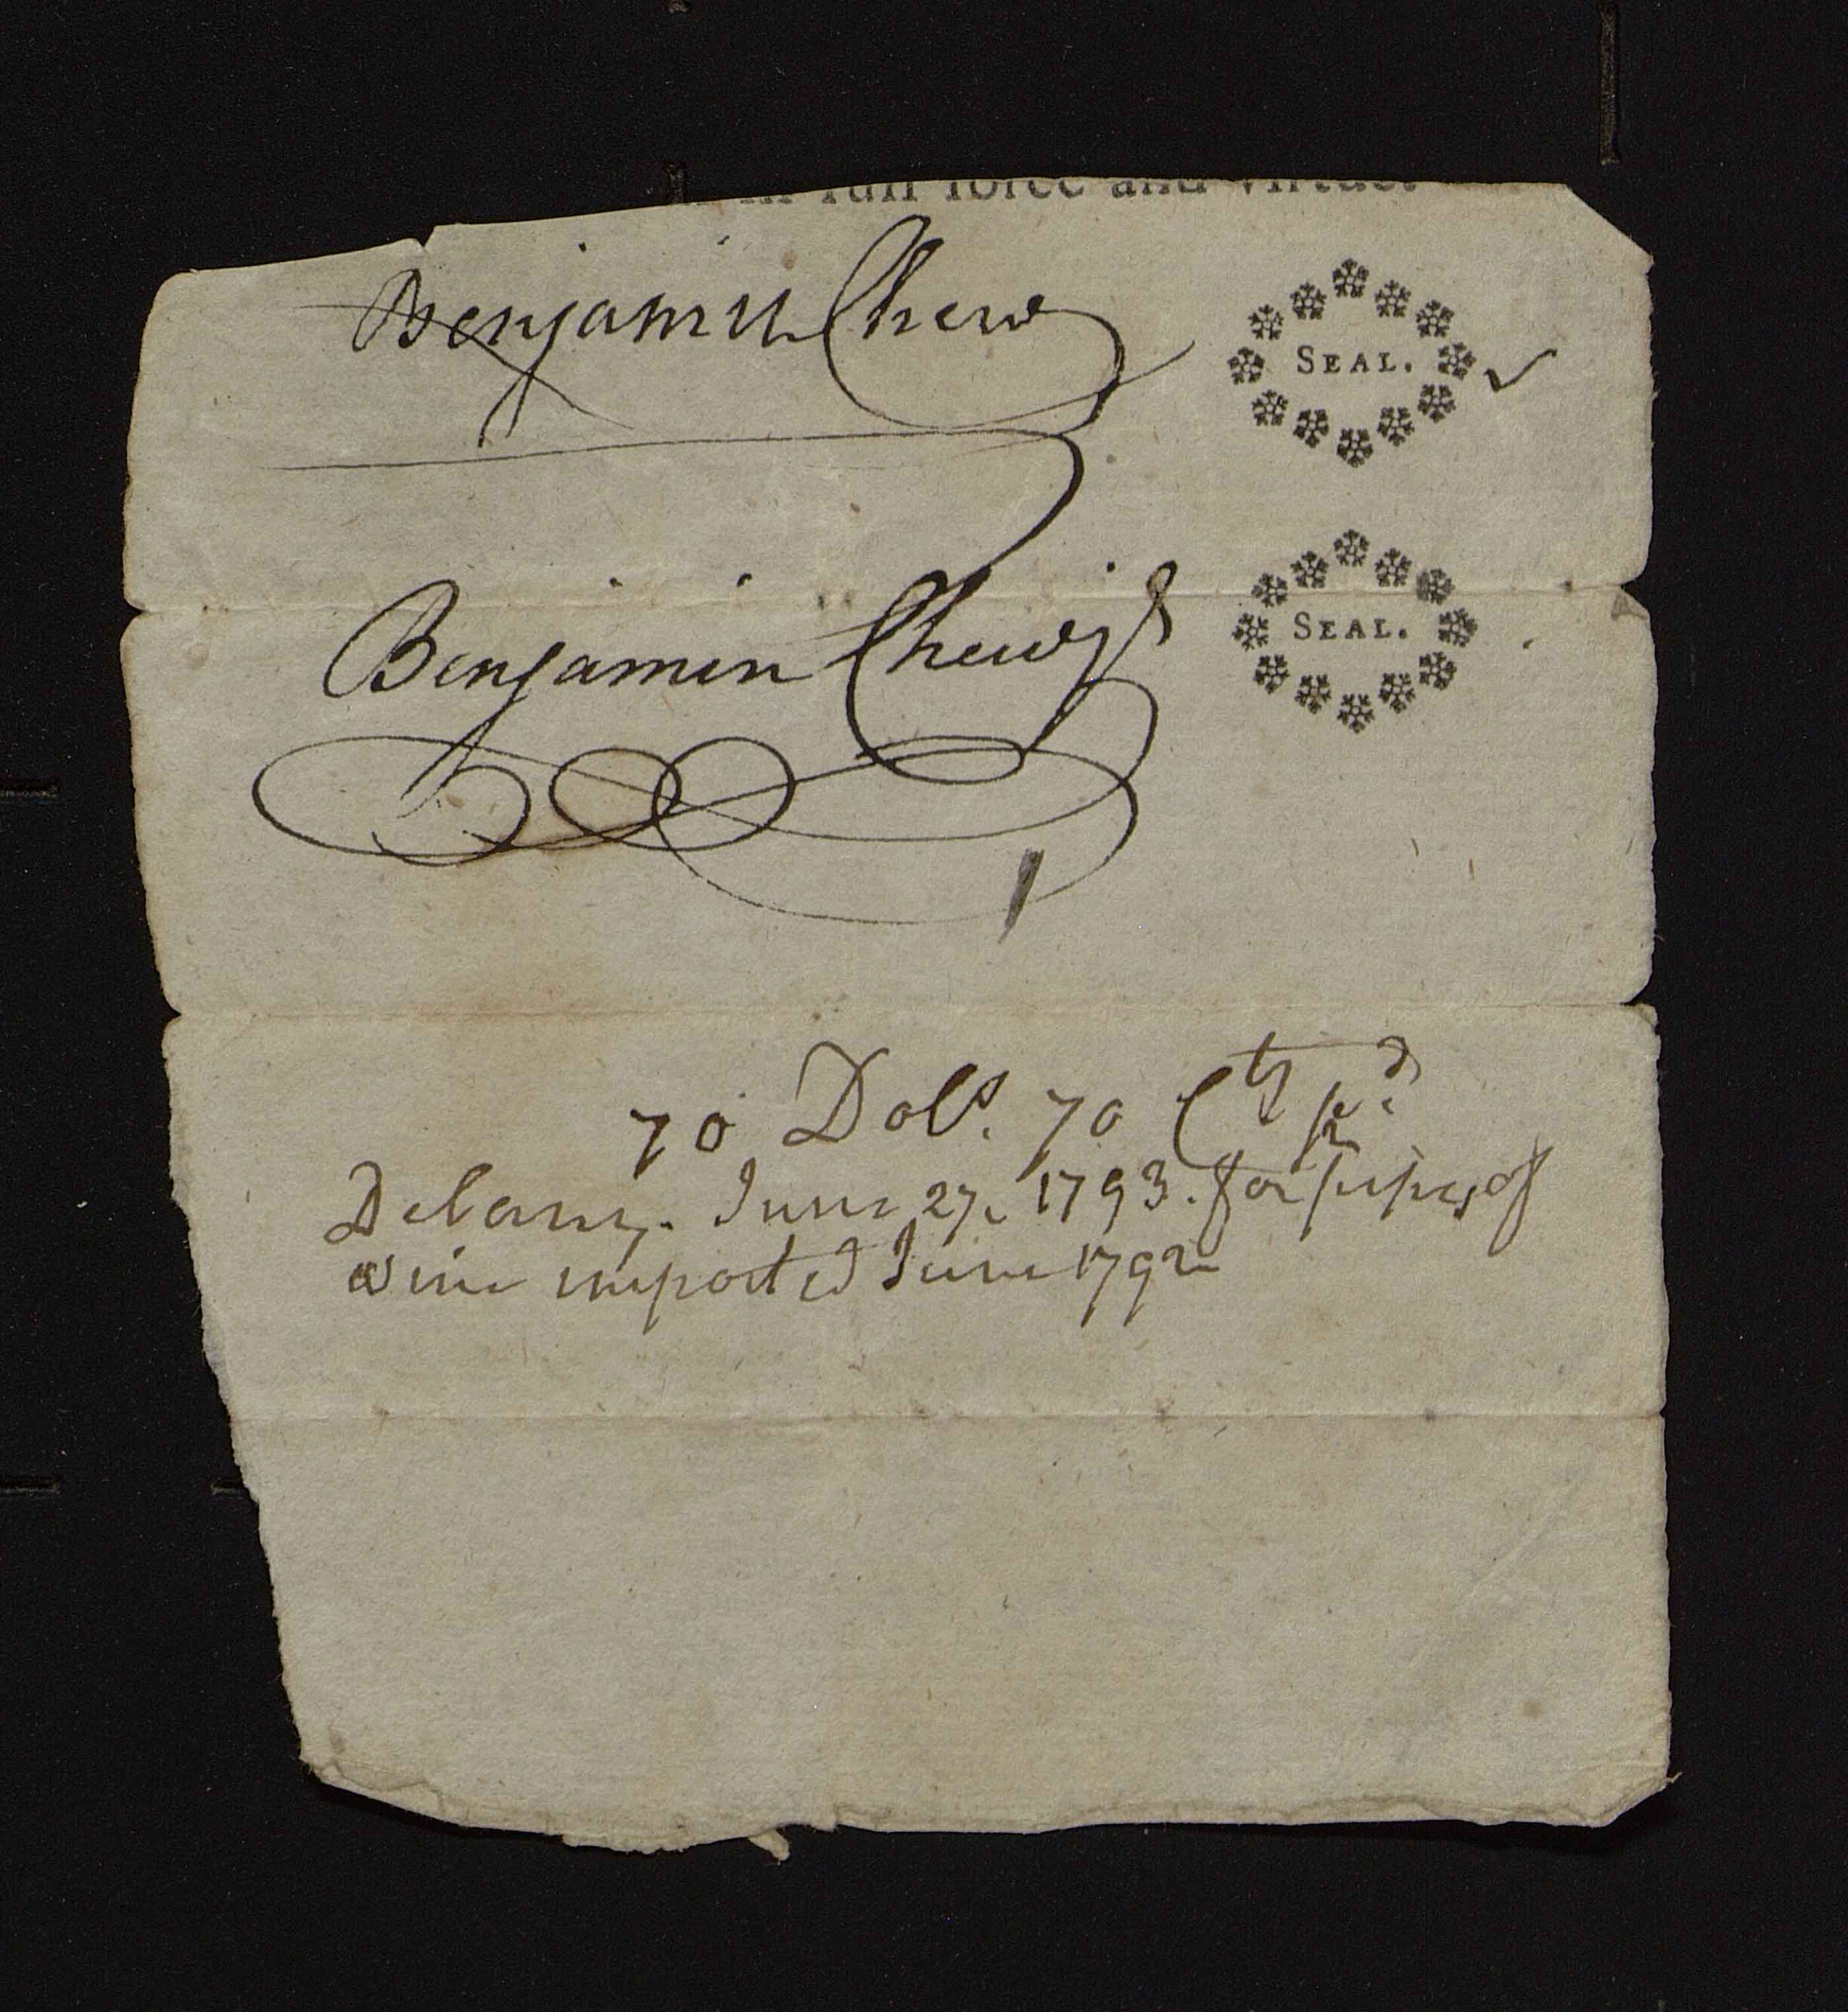 in full force and virtue.
Benjamin Chew SEAL.
Benjamin Chew Jr SEAL.
70 Dols. 70 Cts pd
Delany. June 27. 1793. for pipes of
wine imported June 1792